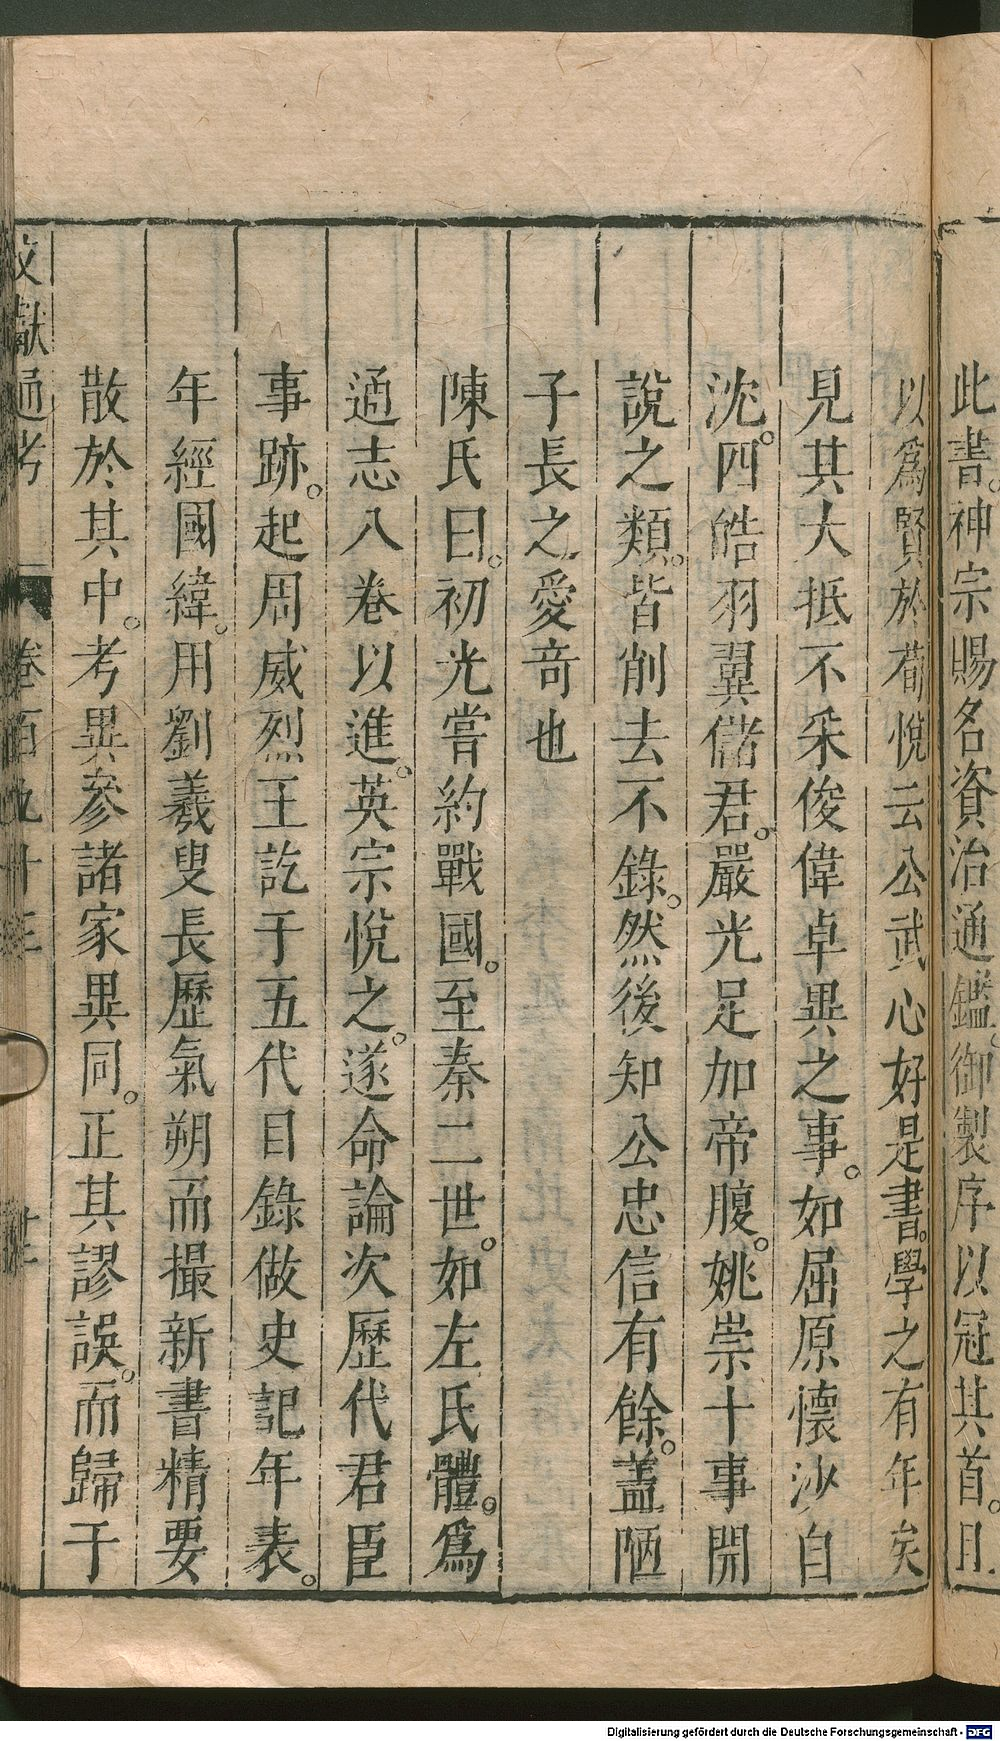 此書。神宗賜名資治通鑑。御製序以冠其首。且
以爲賢於荀悅云公武心好是書。學之有年矣
見其大抵不采俊偉卓異之事。如屈原懷沙自
沈。四皓羽翼儲君。嚴光足加帝腹。姚崇十事開
說之類。皆削去不錄。然後知公忠信有餘。蓋陋
子長之愛奇也
陳氏曰。初光嘗約戰國。至秦二世。如左氏體。爲
通志八卷以進。英宗悅之。遂命論次歷代君臣
事跡。起周威烈王訖于五代目錄倣史記年表。
年經國緯。用劉羲叟長歷氣朔而撮新書精要
散於其中。考異參諸家異同。正其謬誤。而歸于
文獻通考 卷百九十三
Digitalisierung gefördert durch die Deutsche Forschungsgemeinschaft - DFG